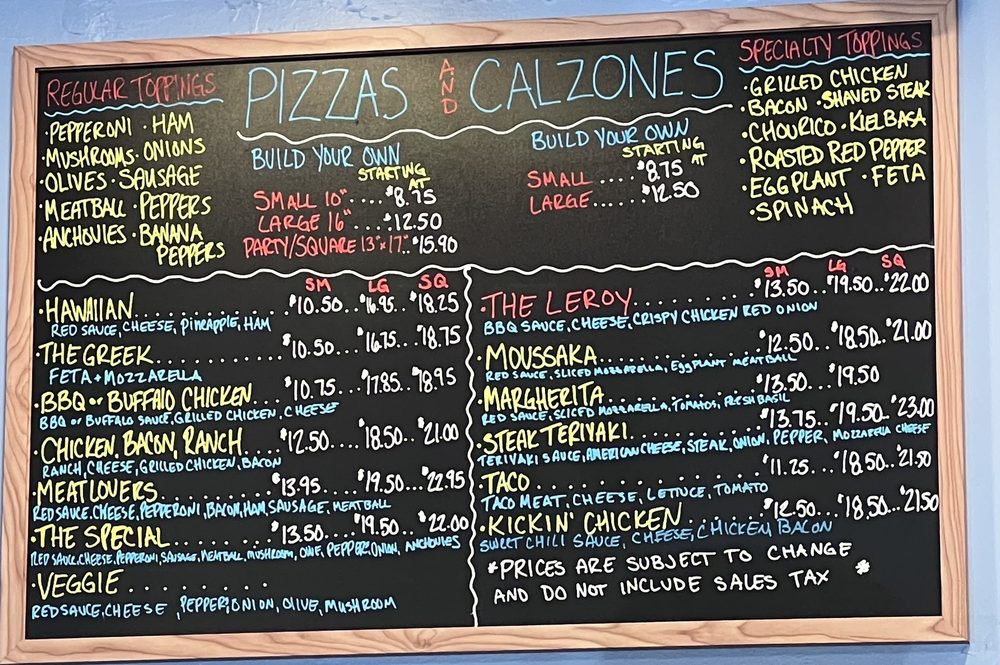 REGULAR TOPPINGS
·PEPPERONI ·HAM
·MUSHROOMS·ONIONS
·OLIVES·SAUSAGE
·MEATBALL·PEPPERS
·ANCHOVIES·BANANA
PEPPERS
PIZZAS AND CALZONES
BUILD YOUR OWN
STARTING AT
SMALL 10"..... $8.75
LARGE 16"..... $12.50
PARTY/SQUARE 13"x17".. $15.90
BUILD YOUR OWN
STARTING AT
SMALL.... $8.75
LARGE...... $12.50
SPECIALTY TOPPINGS
·GRILLED CHICKEN
·BACON ·SHAVED STEAK
·CHOURICO·KIELBASA
·ROASTED RED PEPPER
·EGGPLANT ·FETA
·SPINACH
SM LG SQ
·HAWAIIAN............ $10.50... $16.95.. $18.25
RED SAUCE, CHEESE, PINEAPPLE, HAM
·THE GREEK........... $10.50... $16.75... $18.75
FETA + MOZZARELLA
·BBQ or BUFFALO CHICKEN... $10.75... $17.85.. $18.95
BBQ or BUFFALO SAUCE, GRILLED CHICKEN, CHEESE
·CHICKEN, BACON, RANCH.... $12.50.... $18.50.. $21.00
RANCH, CHEESE, GRILLED CHICKEN, BACON
·MEATLOVERS.......... $13.95.... $19.50... $22.95
RED SAUCE, CHEESE, PEPPERONI, BACON, HAM, SAUSAGE, MEATBALL
·THE SPECIAL.......... $13.50... $19.50... $22.00
RED SAUCE, CHEESE, PEPPERONI, SAUSAGE, MEATBALL, MUSHROOM, OLIVE, PEPPER, ONION, ANCHOVIES
·VEGGIE..........
RED SAUCE, CHEESE, PEPPER, ONION, OLIVE, MUSHROOM
SM LG SQ
THE LEROY............ $13.50... $19.50... $22.00
BBQ SAUCE, CHEESE, CRISPY CHICKEN RED ONION
·MOUSSAKA............ $12.50... $18.50.. $21.00
RED SAUCE, SLICED MOZZARELLA, EGGPLANT MEATBALL
·MARGHERITA........... $13.50... $19.50
RED SAUCE, SLICED MOZZARELLA, TOMATOS, FRESH BASIL
·STEAK TERIYAKI........ $13.75... $19.50.. $23.00
TERIYAKI SAUCE, AMERICAN CHEESE, STEAK, ONION, PEPPER, MOZZARELLA CHEESE
·TACO............. $11.25... $18.50... $21.50
TACO MEAT, CHEESE, LETUCE, TOMATO
·KICKIN' CHICKEN....... $12.50... $18.50... $21.50
SWEET CHILI SAUCE, CHEESE, CHICKEN, BACON
*PRICES ARE SUBJECT TO CHANGE
AND DO NOT INCLUDE SALES TAX *